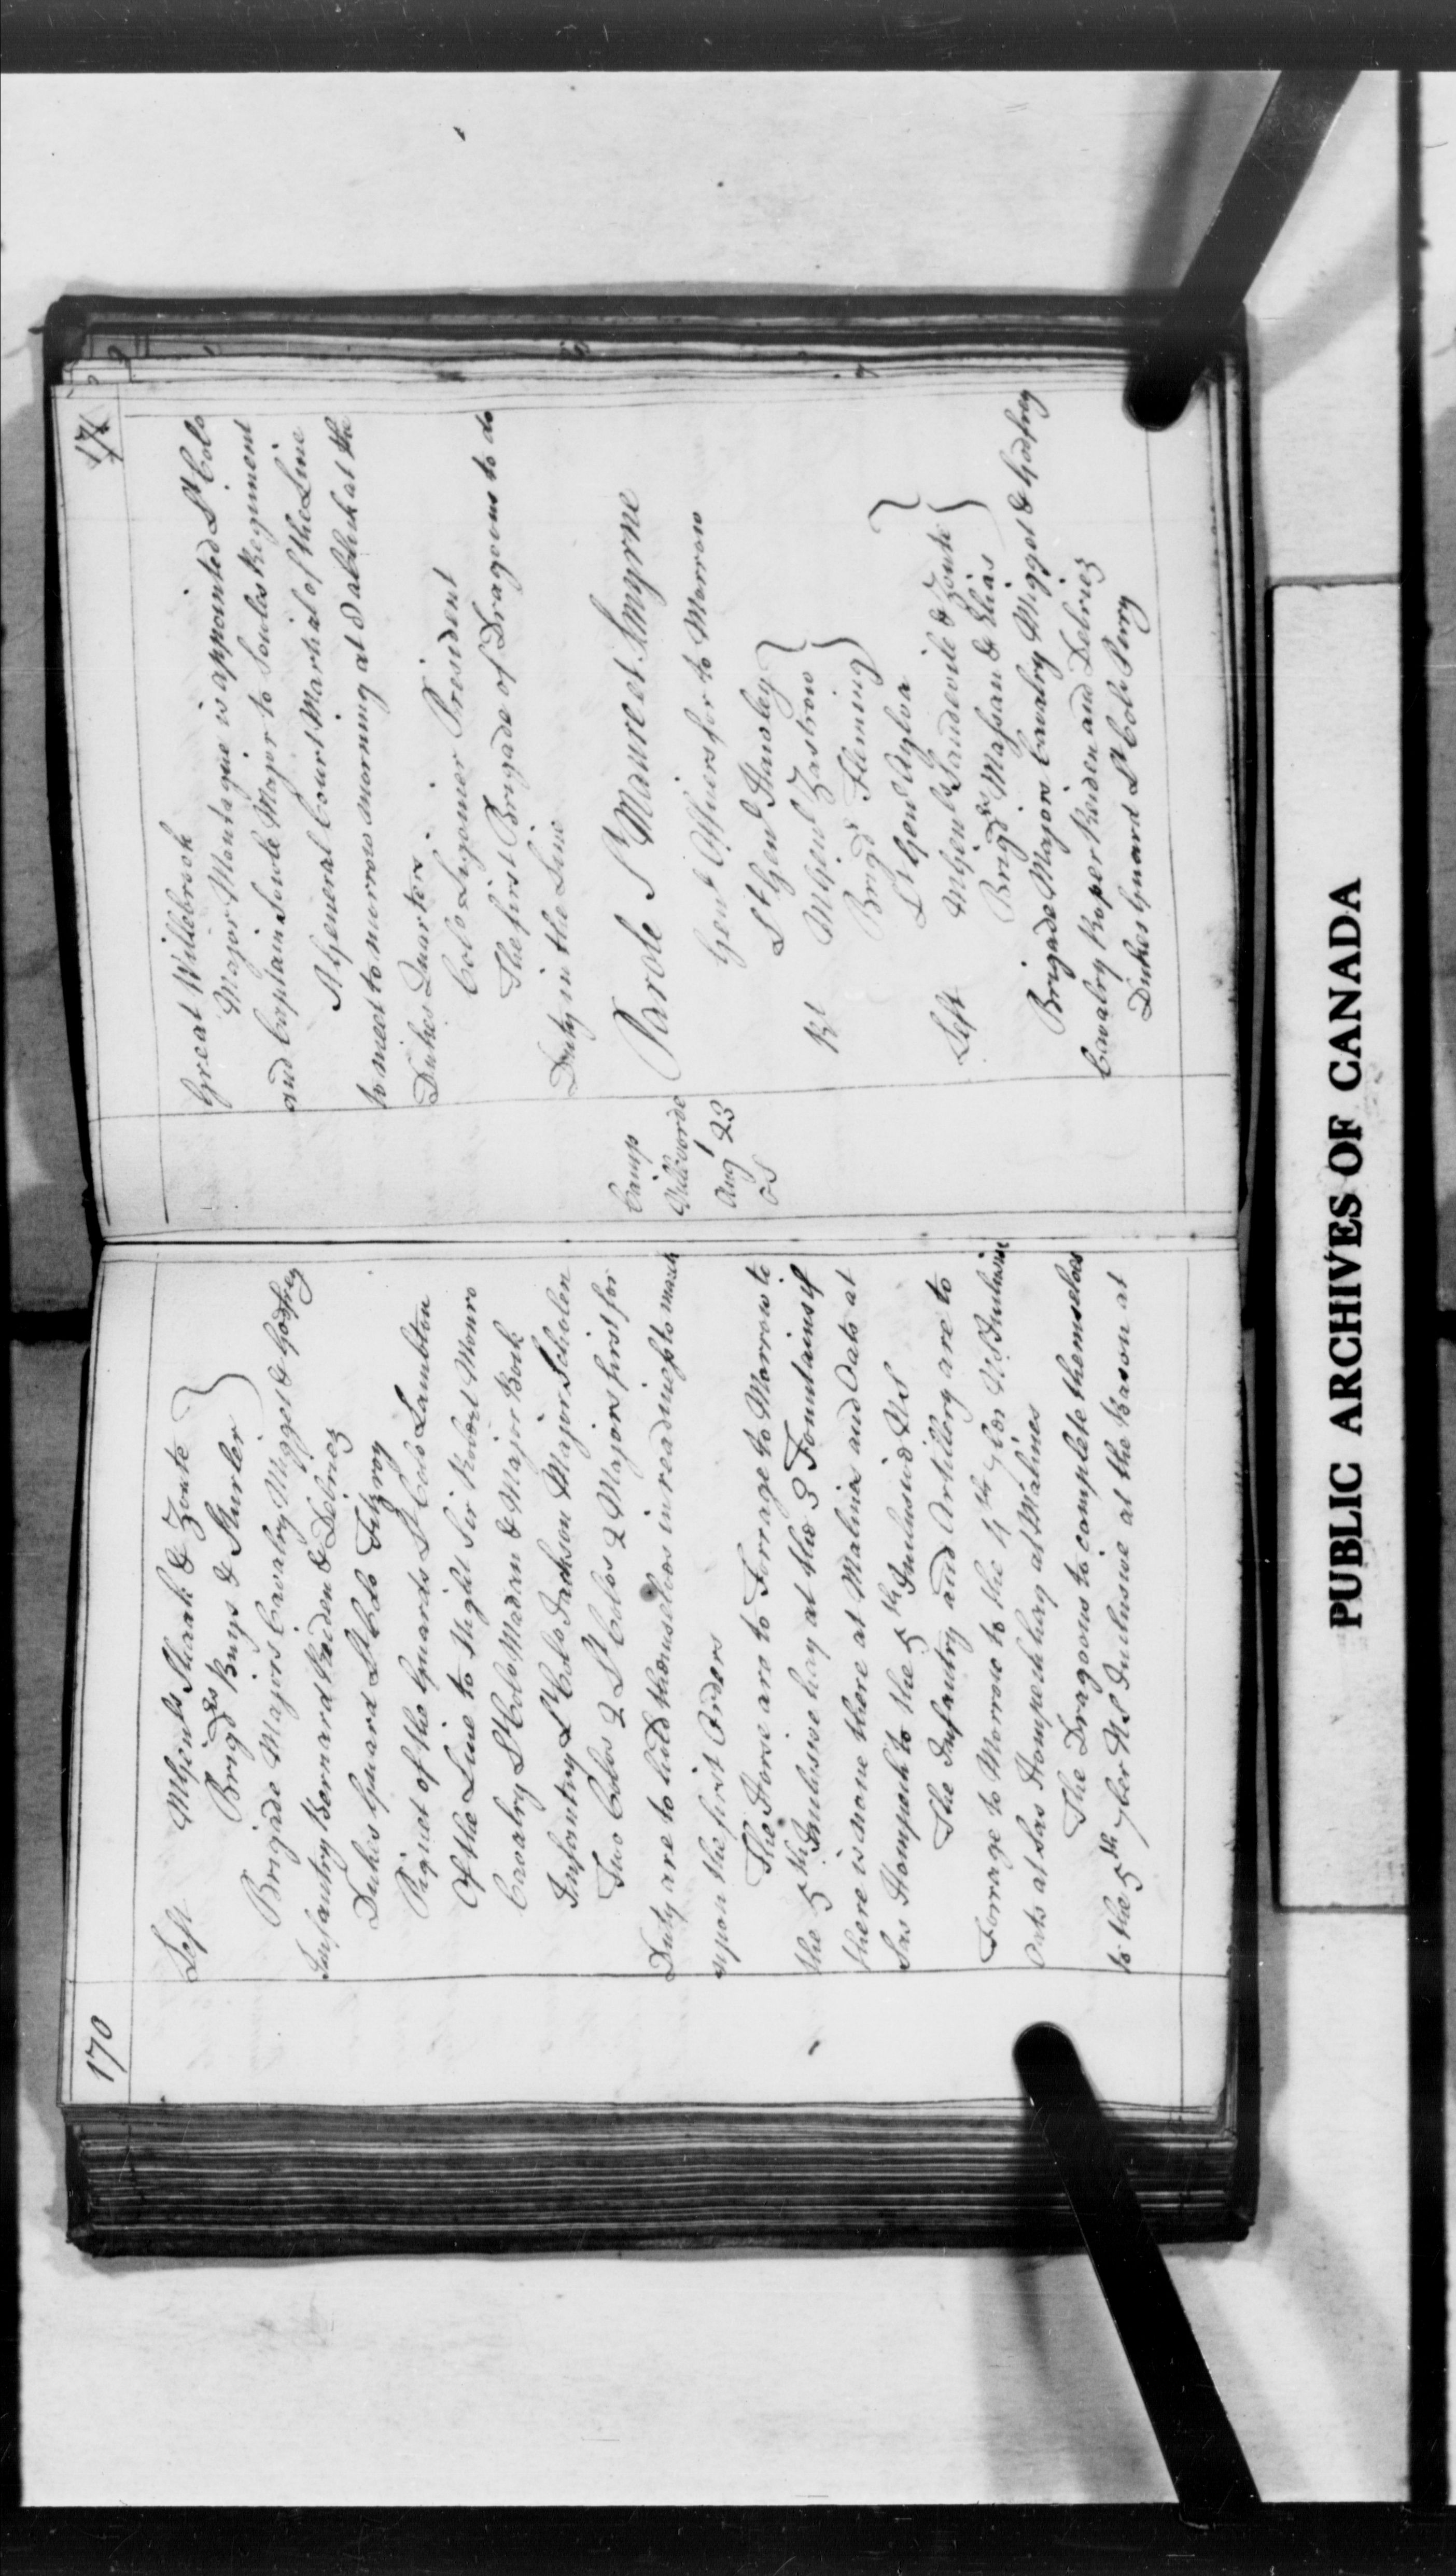 170
Left MGenls Sturak & Zoute
Brigds Buys & Sturler
Brigade Majors Cavalry Wigget & Godfrey
Infantry Bernard Reiden & Debriez
Dukes Guard Lt Colo Fitzroy
Piquet of the Guards Lt Colo Lambton
Of the Line to Night Sir Robert Monro
Cavalry Lt Colo Madan & Major Bock
Infantry Lt Colo Jackson Major Scholen
Two Colos 2 Lt Colos 2 Majors first for
Duty are to hold themselves in readiness to march
upon the first Orders
The Horse are to Forrage to Morrow to
the 5th Inclusive hay at the 3 Fountains if
there is none there at Malines and Oats at
Sas Hompesh to the 5th Inclusive NS
The Infantry and Artillery are to
Forrage to Morrow to the 4th 7ber NS Inclusive
Oats at Sas Hompesh hay at Malines
The Dragoons to complete themselves
to the 5th 7ber NS Inclusive at the Bason at
171
Great Willebroek
Major Montague is appointed Lt Colo
and Captain Sowle Major to Sowles Regiment
A General Court Martial of the Line
to meet to morrow morning at 8 aClock at the
Dukes Quarters
Colo Ligonier President
The first Brigade of Dragoons to do
Duty in the Line
Camp
Vilvoorde
Augt 23
OS
Parole St Maure et Smyrne
Genl Officers for to Morrow
Lt Genl Hawley
Rt MGenl Zastrow
Brigd Fleming
Lt Genl Aylva
Left MGenls Sandevile & Zoute
Brigds Massau & Elias
Brigade Majors Cavalry Wigget & Godfrey
Cavalry Roper Reiden and Debriez
Dukes Guard Lt Colo Perry
PUBLIC ARCHIVES OF CANADA